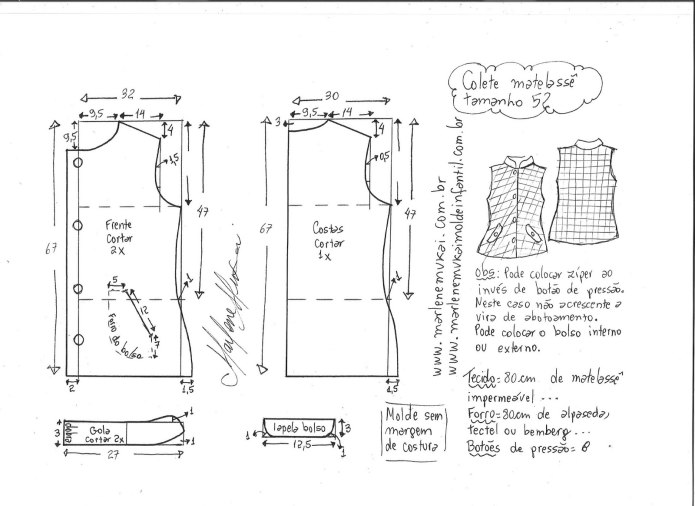 Colete matelassê
tamanho 52
32
9,5
14
9,5
4
1,5
47
67
Frente
Cortar
2x
5
12
7
bolso
1
2
1,5
30
9,5
14
3
4
0,5
47
67
Costas
Cortar
1x
1
1,5
Marlene Mukai
www.marlenemukai.com.br
www.marlenemukaimoldeinfantil.com.br
Obs: Pode colocar zíper ao
invés de botão de pressão.
Neste caso não acrescente a
vira de abotoamento.
Pode colocar o bolso interno
ou externo.
Tecido= 80.cm de matelassê
impermeável...
Forro= 80cm de alpaseda,
tectel ou bemberg...
Botões de pressão= 6
3
Gola
cortar 2x
1
1
27
lapela bolso
3
1
12,5
1
Molde sem
margem
de costura